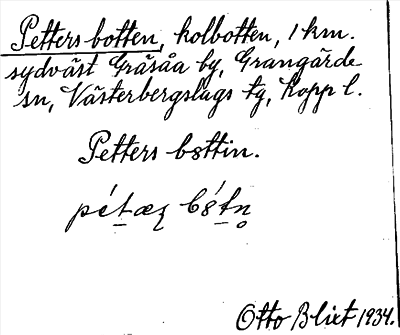 Petters botten, kolbotten, 1 km.
sydväst Gräsåa by, Grangärde
sn, Västerbergslags tg, Kopp l.
Petters bȣttin.
pét̠æʐ bȣ́t̠n̥
Otto Blixt 1934.